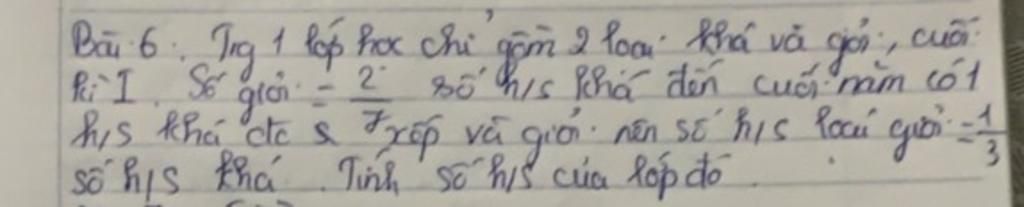 Bài 6: Trg 1 lớp học chỉ gồm 2 loại khá và giỏi, cuối
kì I. Số giỏi = 2/7 số h/s khá đến cuối năm có 1
h/s khá đc xếp và giỏi nên số h/s loại giỏi = 1/3
số h/s khá. Tính số h/s của lớp đó.